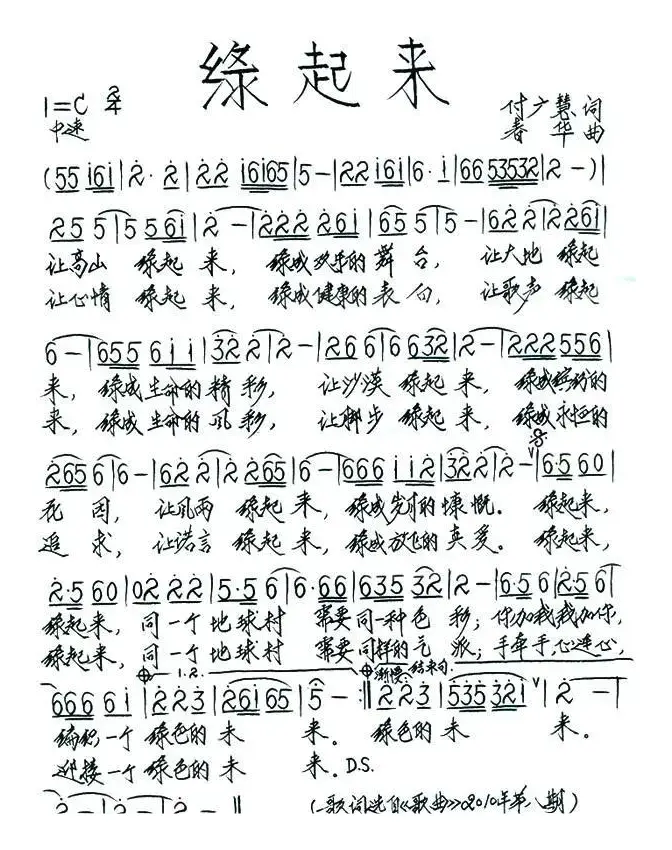 绿起来
1=C 2/4
付广慧 词
中速
春华 曲
(55 161|2· 2|22 16165|5-|22 161|6· 1|66 53532|2-)|
25 5|5 5 61|2-|222 261|65 5|5-|62 2|2 261|
让高山 绿起 来, 绿成欢乐的 舞 台, 让大地 绿起
让心情 绿起 来, 绿成健康的 表 白, 让歌声 绿起
6-|655 611|32 2|2-|26 6|6 632|2-|222 556|
来, 绿成生命的 精 彩, 让沙漠 绿起 来, 绿成缤纷的
来, 绿成生命的 风 彩, 让脚步 绿起 来, 绿成永恒的
265 6|6-|62 2|2 265|6-|666 112|32 2|2-|6·5 60|
花 园, 让风雨 绿起 来, 绿成岁月的 慷 慨. 绿起来,
追 求, 让诺言 绿起 来, 绿成放飞的 真 爱. 绿起来,
2·5 60|02 22|5·5 6|6·66|635 32|2-|6·5 6|2·5 6|
绿起来, 同一个 地球村 需要同一种色 彩; 你加我我加你,
绿起来, 同一个 地球村 需要同样的气 派; 手牵手,心连心,
1.2. 渐慢 结束句.
666 61|2 23|26165|5-:‖2 23|535321|2-|
编织一个 绿色的 未 来. 绿色的 未 来.
迎接一个 绿色的 未 来. D.S.
2-|2-‖ (歌词选自《歌曲》2010年第八期)